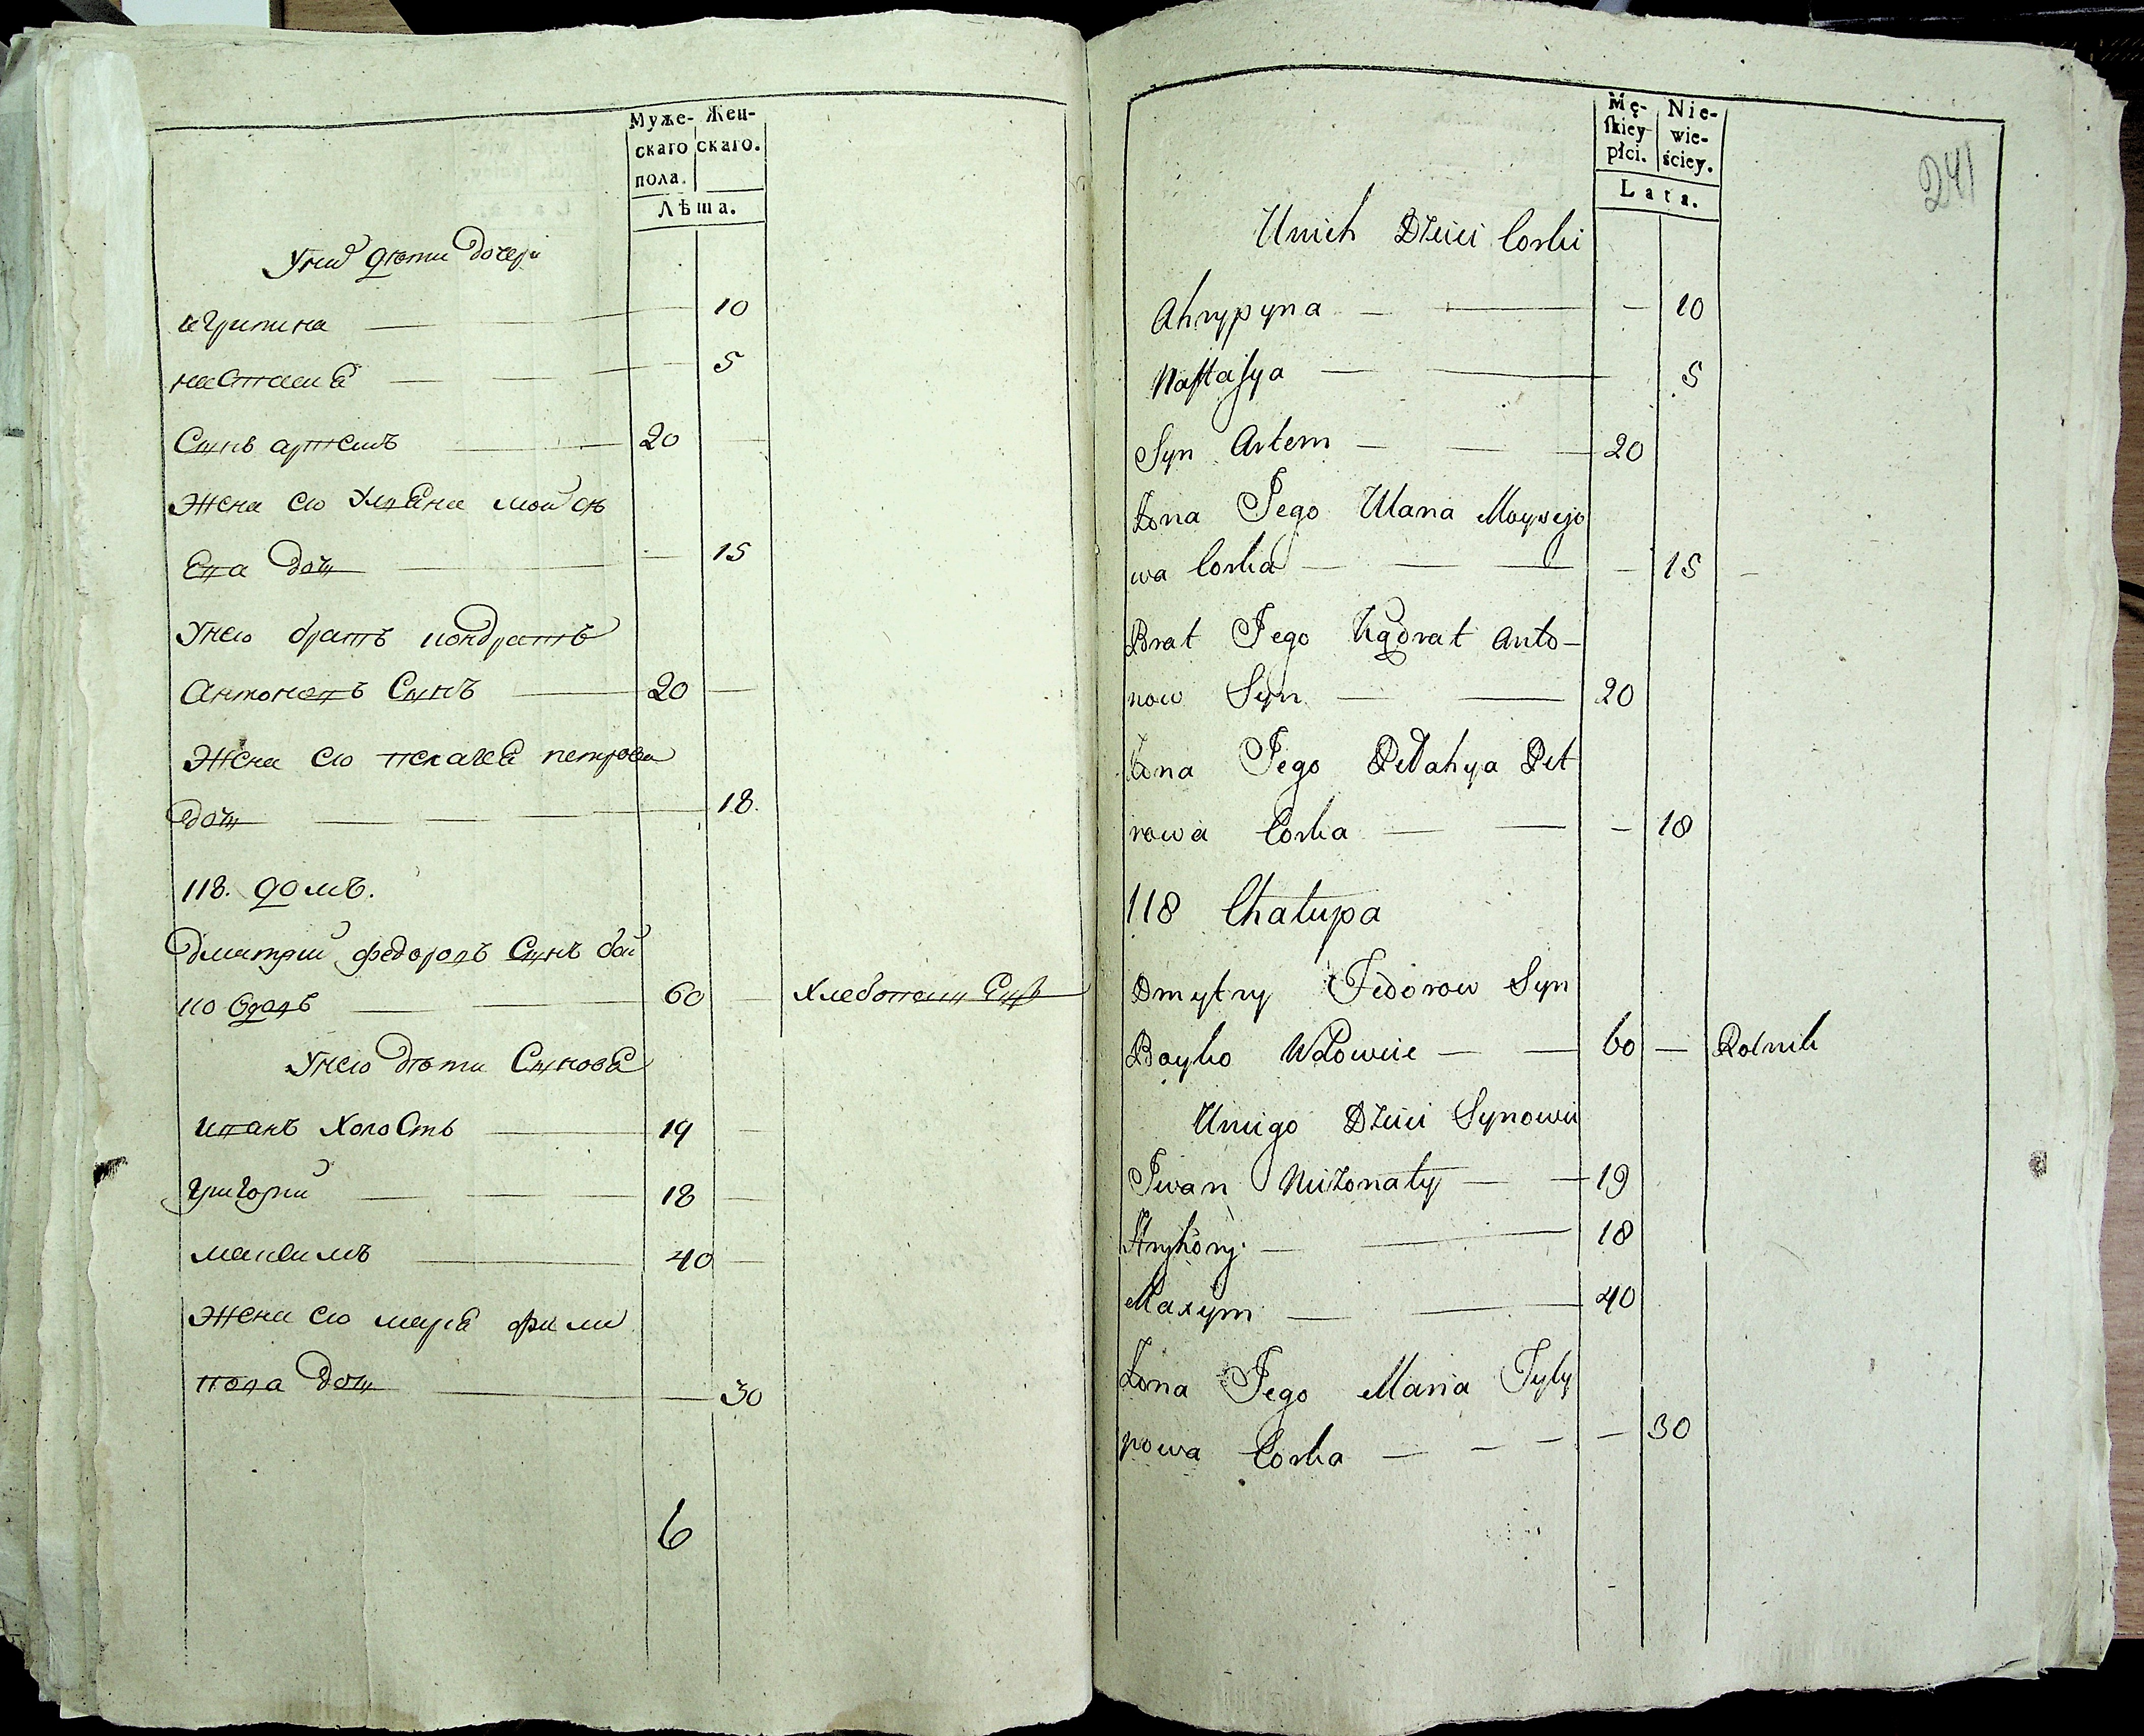 Муже- Жен-
скаго скаго.
пола.
Лѣта.
Унихъ дѣти дочери
агрипина — 10
настасиа — 5
Сынъ артемъ — 20
Жена его Улиана мойсѣ
ева дочь — 15
Унего братъ кондратъ
Антоновъ Сынъ — 20 —
Жена его пелагеа петрова
дочь — 18.
118. домъ.
Дмитрий федоровъ Сынъ бой
ко вдовъ — 60 — Хлебопашецъ
Унего дѣти Сыновя
иванъ холостъ — 19 —
григорий — 18 —
максимъ — 40 —
Жена его мариа фили
пова дочь — 30
6
241
Mę- Nie-
skiey wie-
płci. ściey.
Lata.
Unich Dzieci Corki
Ahrypyna — — 10
Nastasya — 5
Syn Artem — 20
Żona Jego Ulana Moysejo
wa Corka — — 15 —
Brat Jego Kądrat Anto-
now Syn — 20
Żona Jego Pełahya Pet
rowa Corka — — 18
118 Chałupa
Dmytry Fedorow Syn
Boyko Wdowiec — 60 — Rolnik
Uniego Dzieci Synowie
Iwan Nieżonaty — 19
Hryhory — 18
Maxym — 40
Żona Jego Maria Fyly
powa Corka — — 30